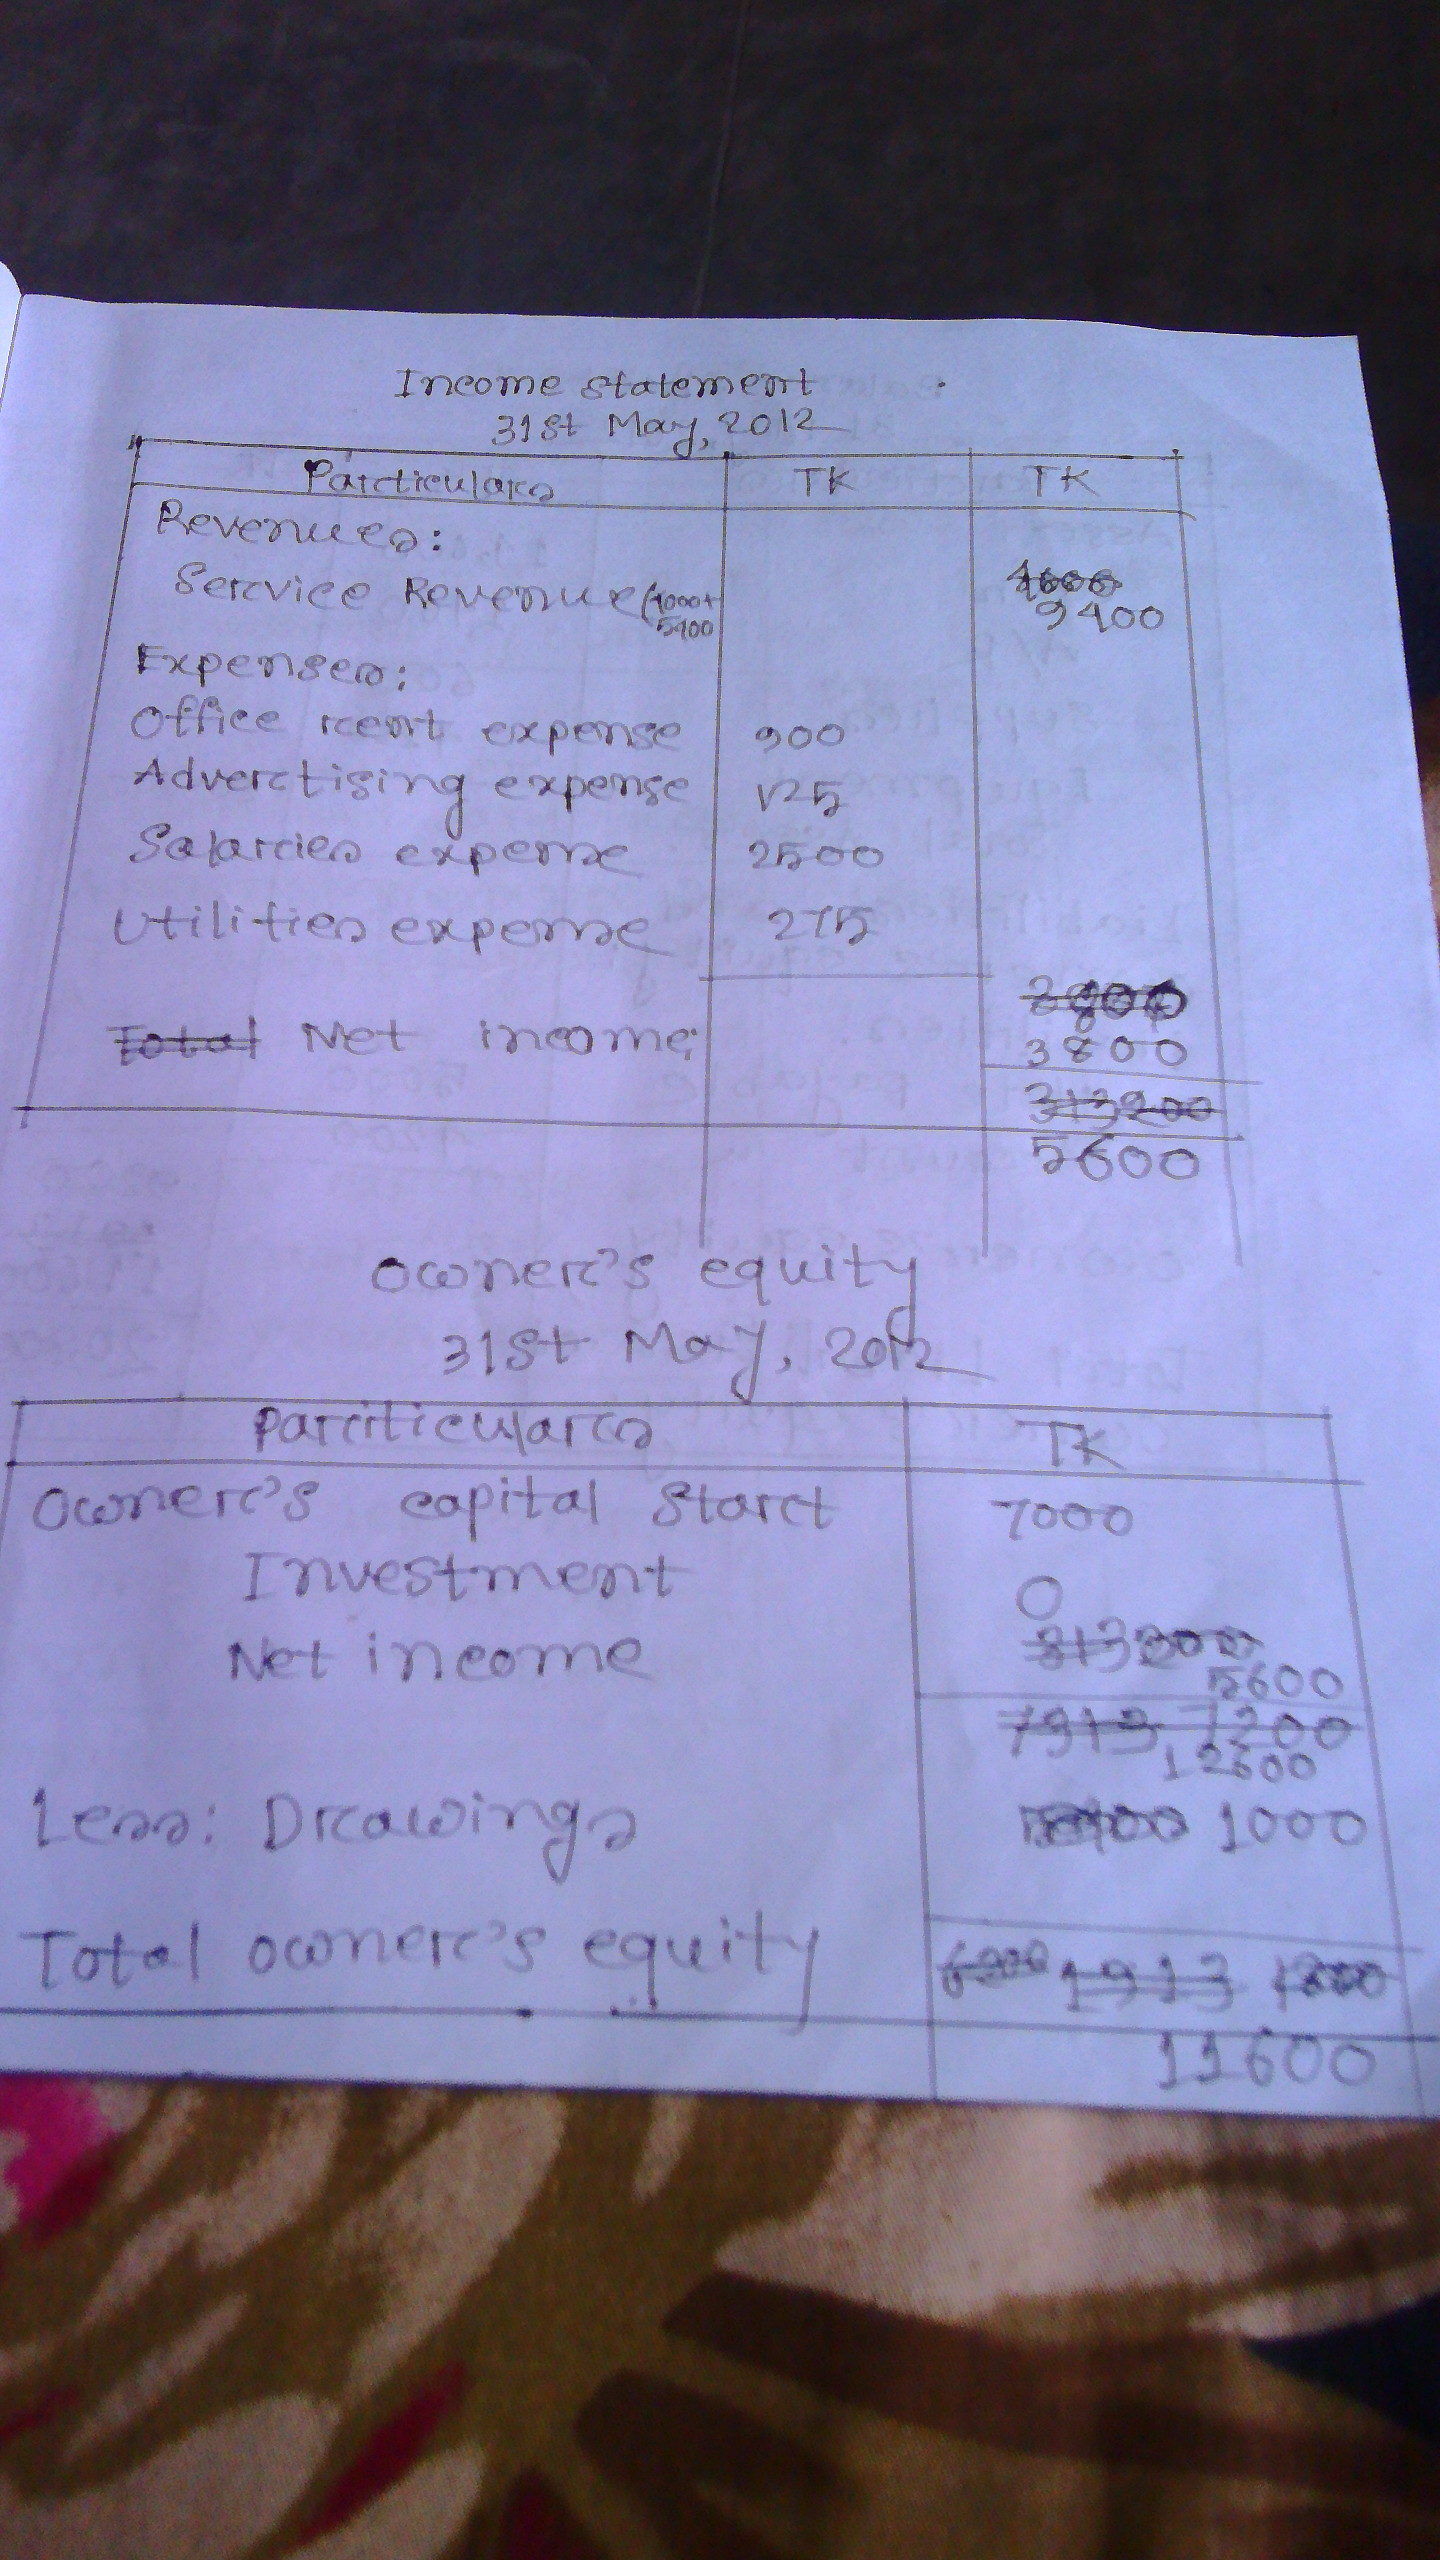 Income statement
31st May, 2012
Particulars TK TK
Revenues:
Service Revenue (4000+
5400
9400
Expenses:
Office rent expense 900
Advertising expense 125
Salaries expense 2500
Utilities expense 275
Total Net income 3800
5600
Owner's equity
31st May, 2012
Particulars TK
Owner's capital start 7000
Investment 0
Net income
5600
7913 7200
12600
Less: Drawings 1000
Total owner's equity 1913
11600